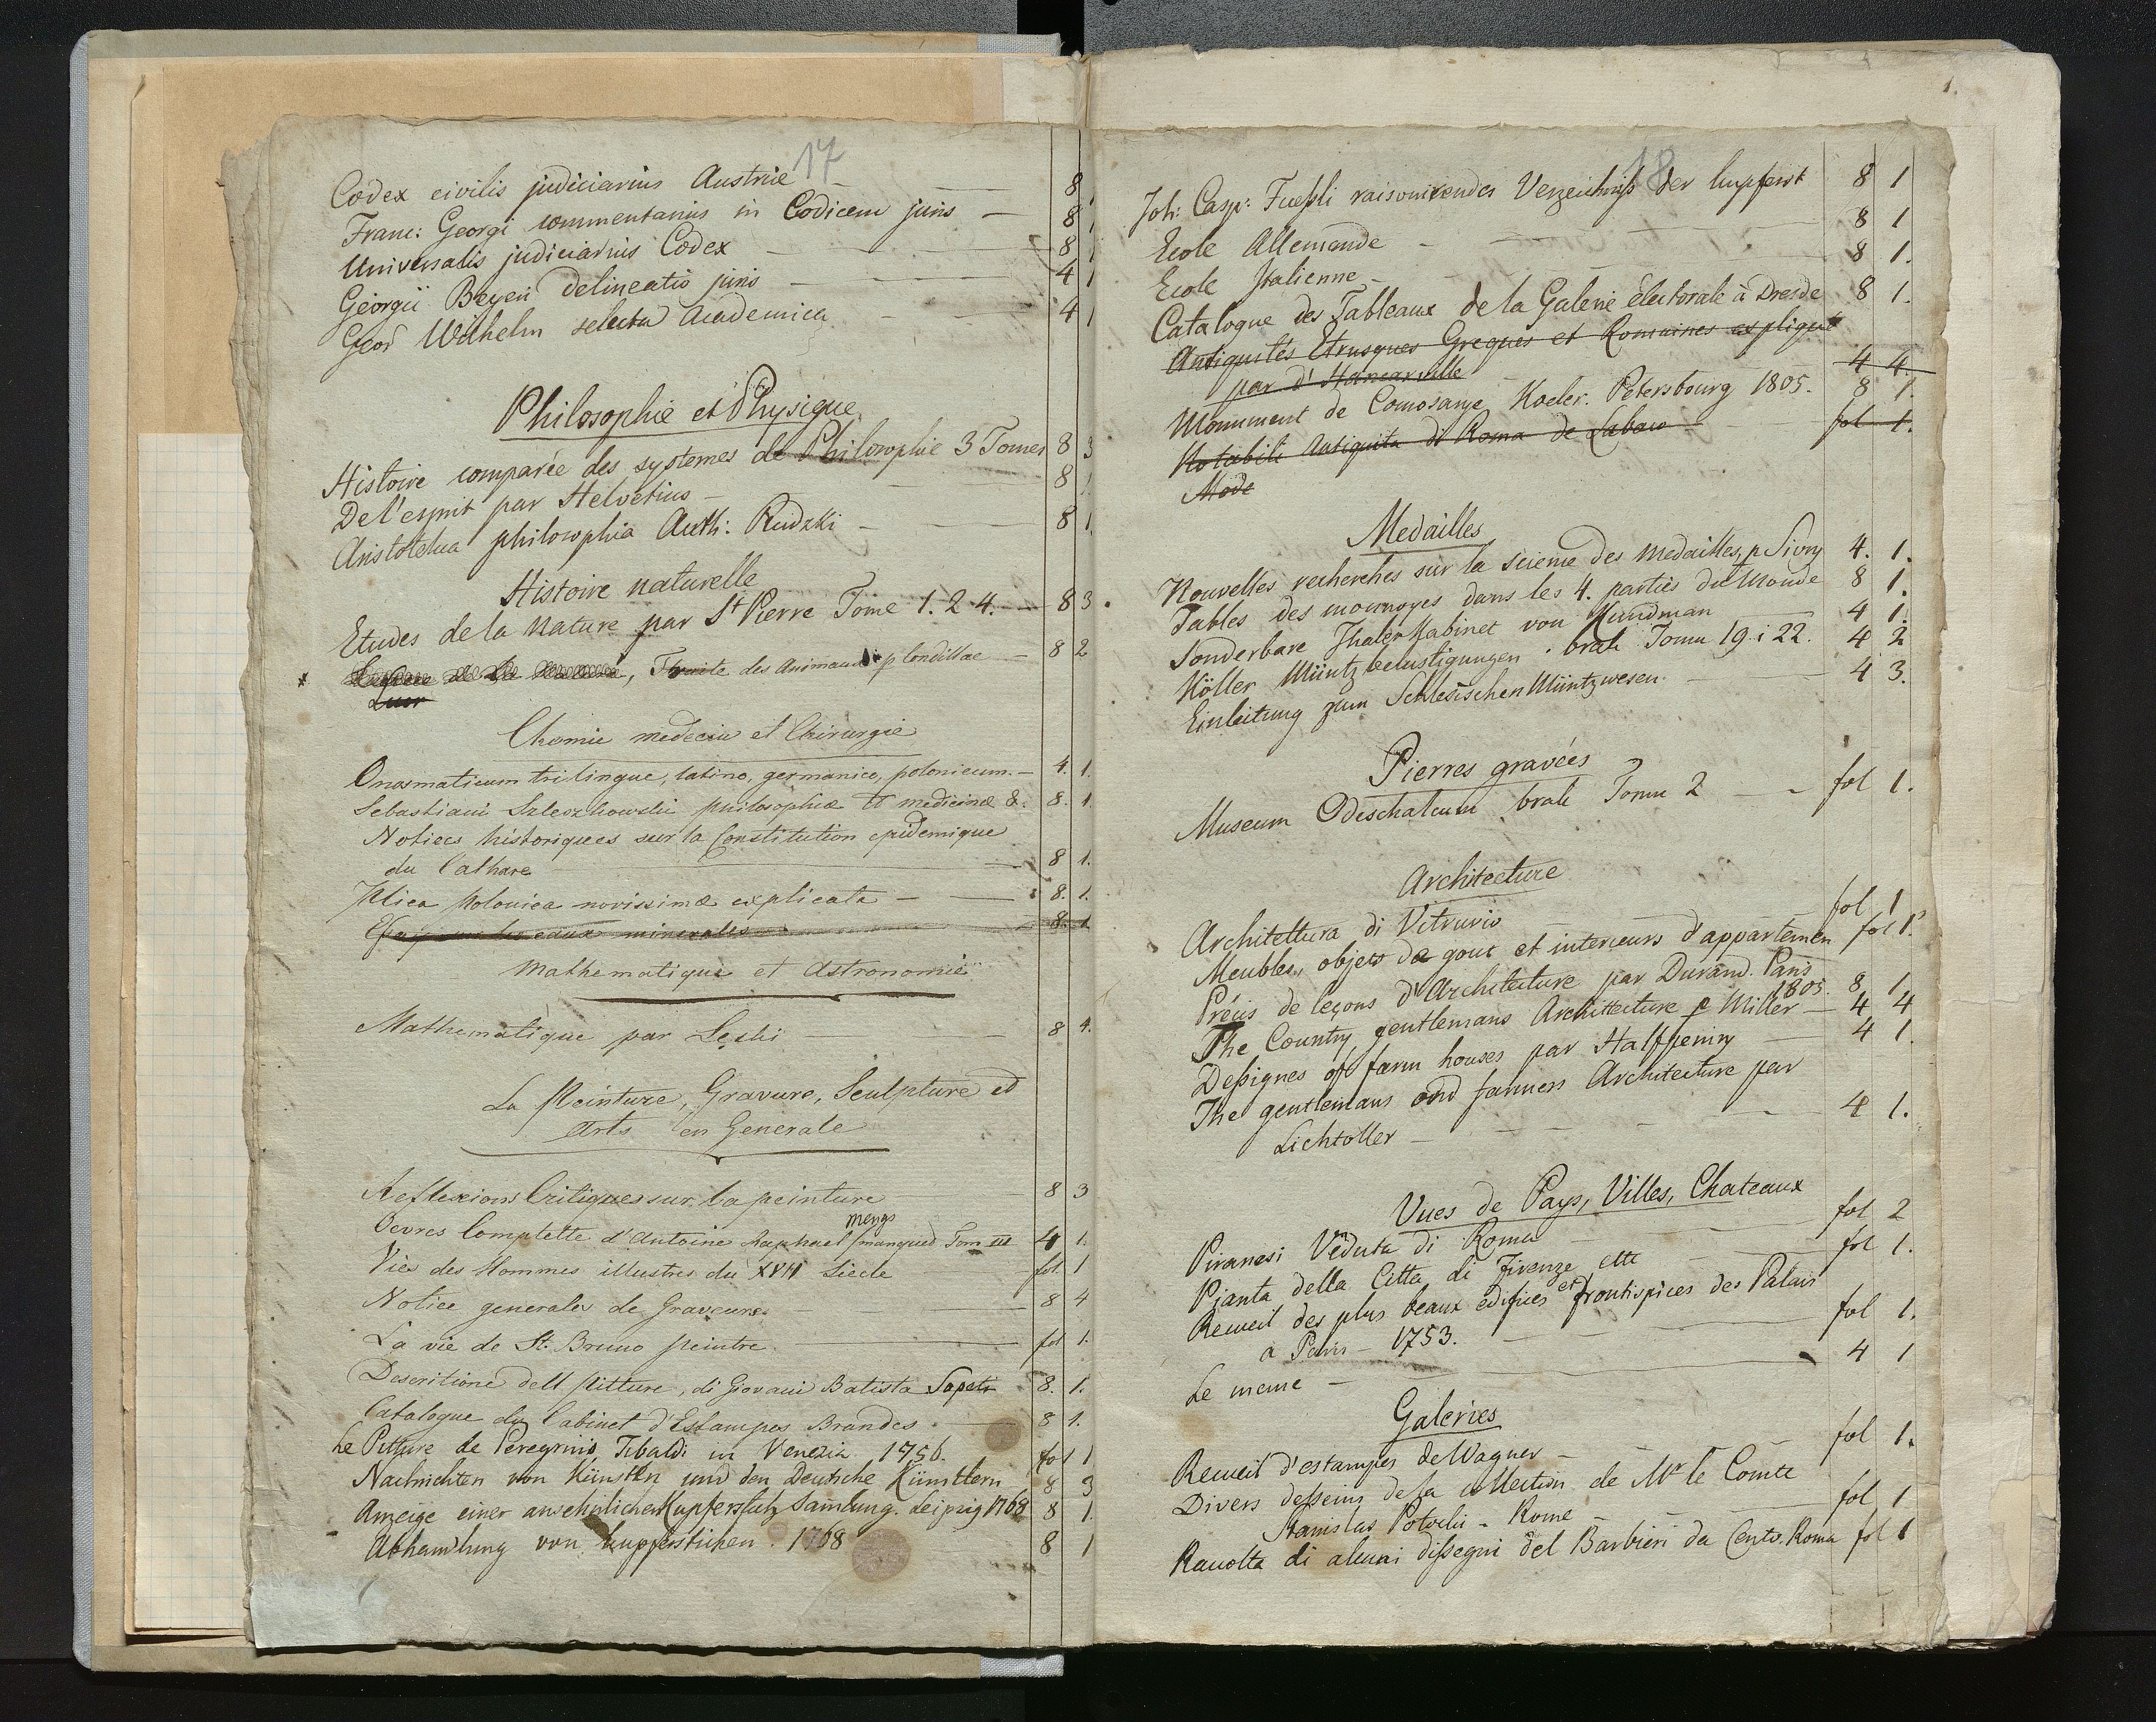 17
Codex civilis judiciarius Austriæ — 8
Franc: Georgi commentarius in Codicem juris — 8 1
Universalis judiciarius Codex — 8 1
Georgii Beyeri delineatio juris — 4 1
Geor Wilhelm selecta Academica — 4 1
Philosophie et Physique
Histoire comparée des systemes de Philosophie 3 Tomes 8 3
De l'esprit par Helvetius — 8 1
Aristotelica philosophia Auth: Rudzki — 8 1
Histoire naturelle
Etudes de la Nature par St Pierre Tome 1. 2 4. — 8 3
Traite des Animaux p Condillac — 8 2
Chemie medecin et Chirurgie
Onosmaticum trilingue, latino, germanico, polonicum. — 4. 1.
Sebastiani philosophiæ et medicinæ &. 8. 1.
Notices historiquees sur la Constitution epidemique
du Cathare 8 1.
Plica Polonica novissimæ explicata — 8. 1.
Essay sur les eaux minerales 8. 1
Mathematique et Astronomie
Mathematique par Leski — 8 1.
La Peinture, Gravure, Sculpture et
Arts en Generale
Reflexions Critiques sur la peinture 8 3
Oevres Complette d'Antoine Raphael Mengs manqued Tom III 4 1.
Vies des Hommes illustres du XVII Siecle — fol. 1
Notice generales de Graveures 8 4
La vie de St. Bruno peintre. — fol 1.
Descritione dell Pitture, di Giovani Batista 8. 1.
Catalogue du Cabinet d'Estampes Brandes. — 8 1.
Le Pitture de Peregrino Tibaldi in Venezia 1756. fol 1
Nachrichten von Künstln und den Deutsche Künstlern 8 3
Anzeige einer ansehnlichen Kupferstich Samlung. Leipzig 1768 8 1.
Abhandlung von Kupferstichen. 1768 8 1
18
1.
Joh: Casp: Fuessli raisonirendes Verzeichniss der Kupferst 8 1
Ecole Allemande — 8 1
Ecole Italienne — 8 1.
Catalogue des Tableaux de la Galerie électorale à Dresde 8 1.
Antiquités Etrusques Greques et Romaines expliqué
par d'Hancarville 4 4.
Monument de Comosarye Koeler. Petersbourg 1805. 8 1.
Notabili Antiquita di Roma de fol 1.
Mode
Medailles
Nouvelles recherches sur la science des medailles, p Sivry 4. 1.
Tables des monnoyes dans les 4. parties du Monde 8 1.
Sonderbare Thaler Kabinet von Kundman 4 1.
Köller Müntzbelustigungen brak Tomu 19. i 22. 4 2
Einleitung zum Schlesischen Müntzwesen. — 4 3.
Pierres gravées
Museum Odeschalcum brak Tomu 2 — fol 1.
Architecture
Architettura di Vitruvio fol 1
Meubles, objets de gout et interieurs d'appartemen fol 1.
Précis de leçons d'Architecture par Durand. Paris
1805. 8 1
The Country gentlemans Architecture p Miller — 4 4
Dessignes of farm houses par Halfpenny — 4 1.
The gentlemans and farmers Architecture par
Lichtoller — 4 1.
Vues de Pays, Villes, Chateaux
Piranesi Véduta di Roma — fol 2
Pianta della Citta di Firenze ette fol 1.
Recueil des plus beaux edifices et frontispices des Palais
a Paris — 1753. fol 1.
Le meme — 4 1
Galeries
Recueil d'estampes de Wagner — fol 1.
Divers desseins de la collection de Mr le Comte
Stanislas Potocki - Rome — fol 1
Racolta di alcuni dissegni del Barbieri da Cento. Roma fol 1